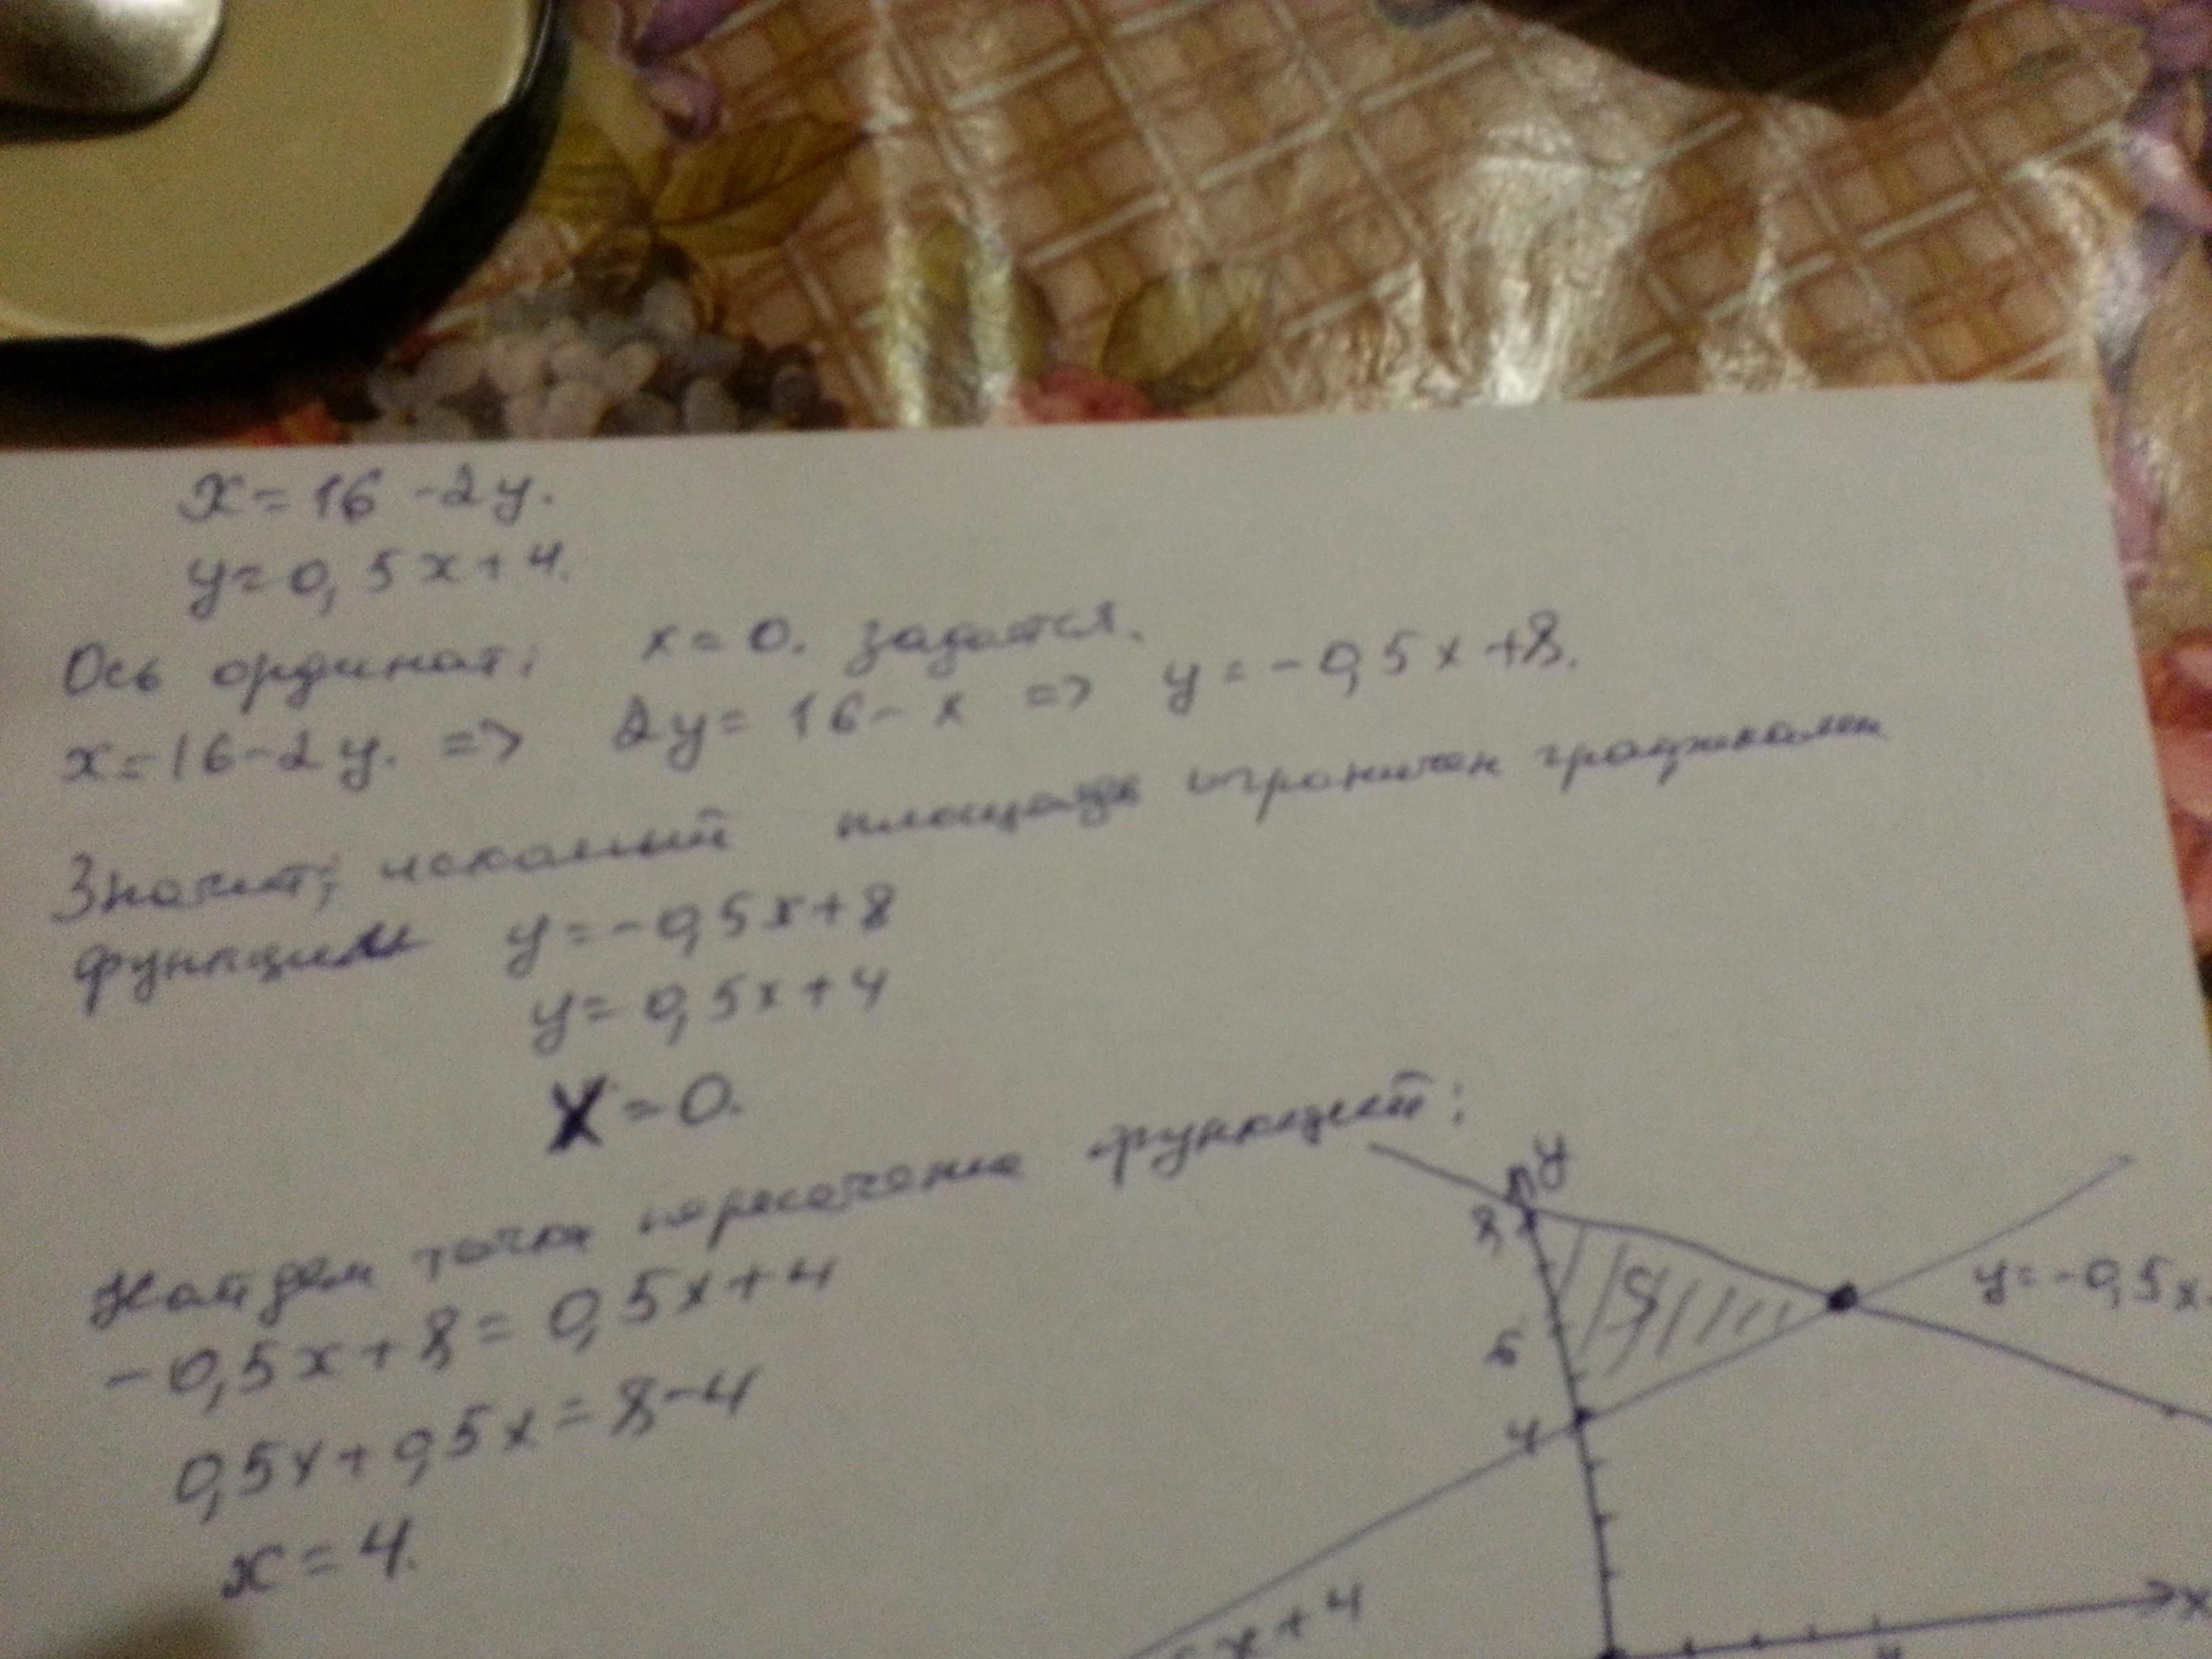 x = 16 - 2y.
y = 0,5x + 4.
Ось ординат; x = 0. задается.
x = 16 - 2y. => 2y = 16 - x => y = -0,5x + 8.
Значит; искомый площадь ограничен графиками
функции y = -0,5x + 8
y = 0,5x + 4
x = 0.
Найдем точки пересечения функций:
-0,5x + 8 = 0,5x + 4
0,5x + 0,5x = 8 - 4
x = 4.
y
8
S
y = -0,5x
5
4
x + 4
x